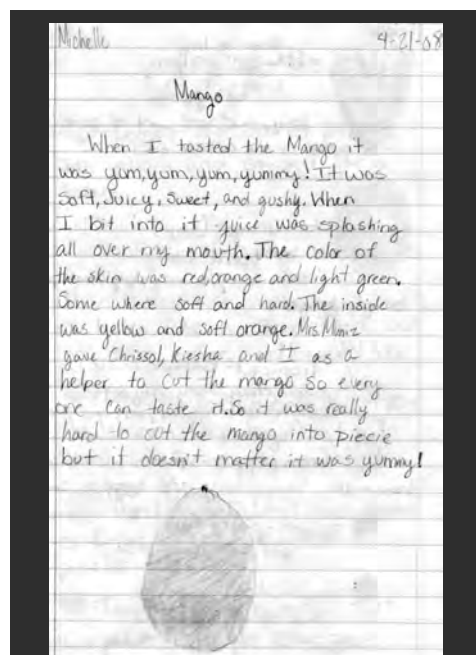 Michelle 4-21-08
Mango
When I tasted the Mango it
was yum, yum, yum, yummy! It was
Soft, Juicy, sweet, and gushy. When
I bit into it juice was splashing
all over my mouth. The color of
the skin was red, orange and light green.
Some where soft and hard. The inside
was yellow and soft orange. Mrs.
gave Chrissol, Kiesha and I as a
helper to cut the mango so every
one can taste it. So it was really
hard to cut the mango into piecie
but it doesn't matter it was yummy!